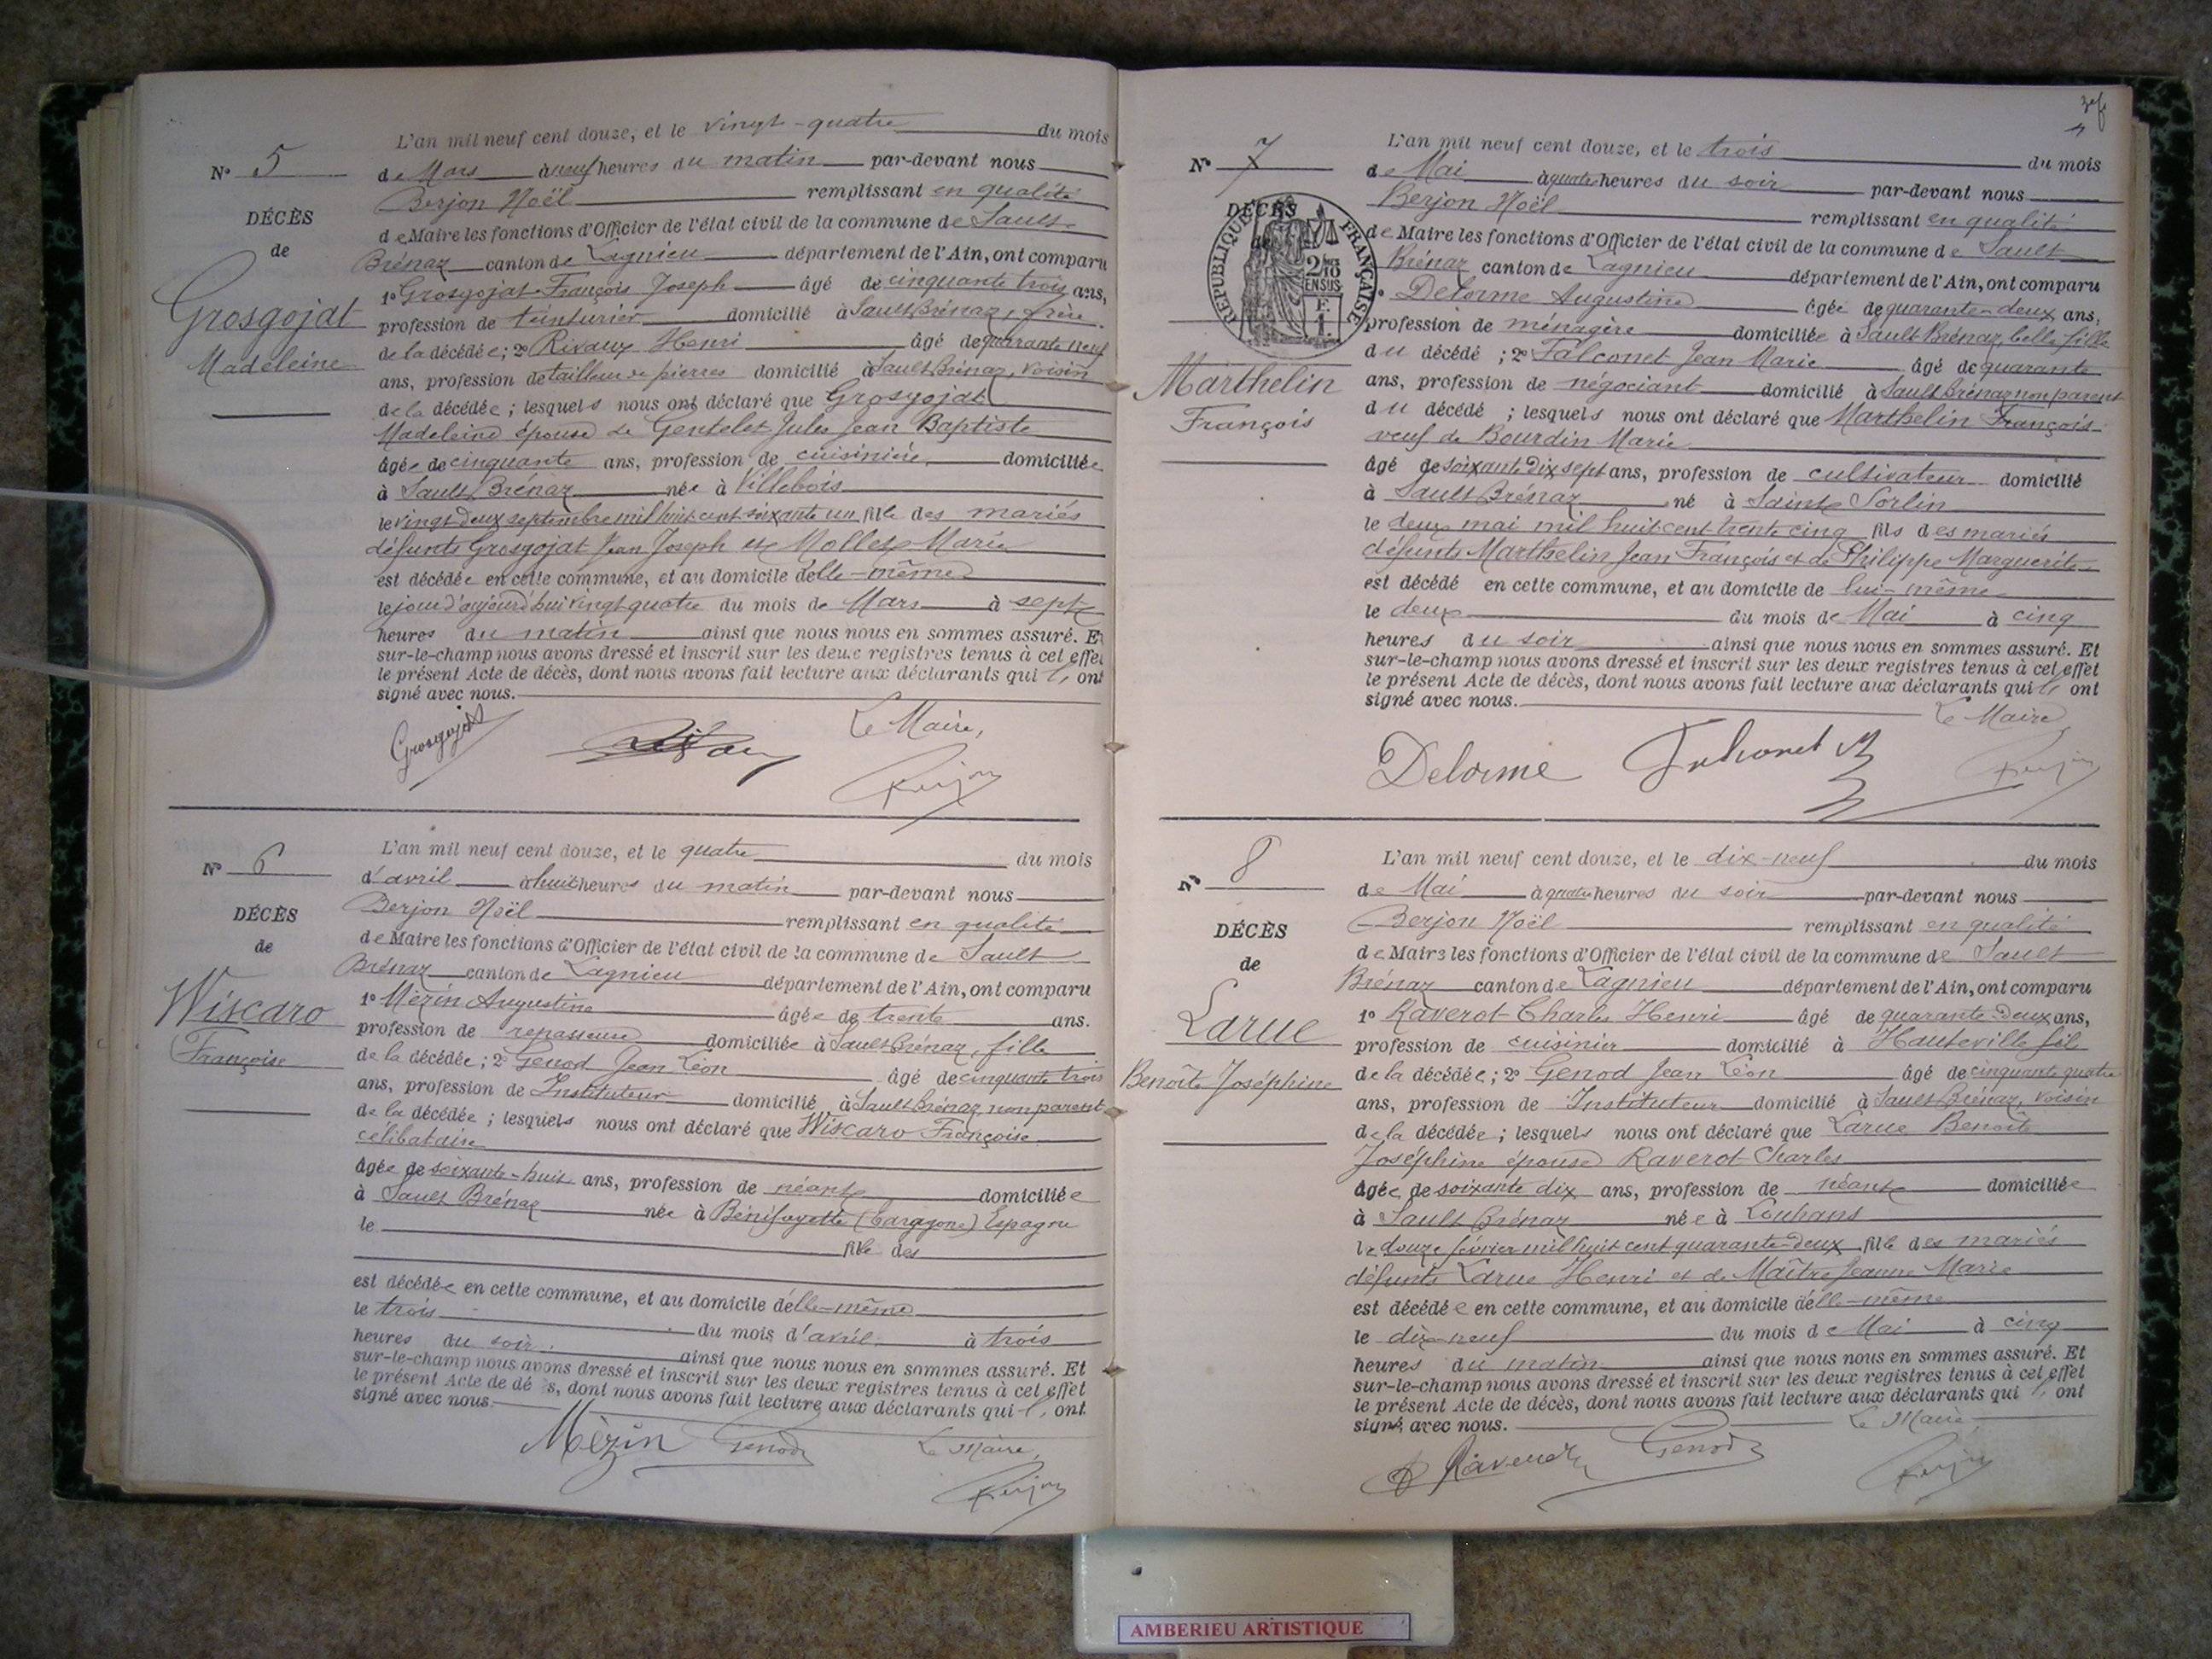 L'an mil neuf cent douze, et le vingt-quatre du mois
N° 5
de Mars à neuf heures du matin par-devant nous
Berjon Noël remplissant en qualité
DÉCÈS
de Maire les fonctions d'Officier de l'état civil de la commune de Sault
de
Brénaz canton de Lagnieu département de l'Ain, ont comparu
Grosgojat
Madeleine
1° Grosgojat François Joseph âgé de cinquante trois ans,
profession de teinturier domicilié à Sault Brénaz, frère
de la décédée; 2° Rivaux Henri âgé de quarante neuf
ans, profession de tailleur de pierres domicilié à Sault Brénaz, voisin
de la décédée; lesquels nous ont déclaré que Grosgojat
Madeleine épouse de Gentelet Jules Jean Baptiste
âgée de cinquante ans, profession de cuisinière domiciliée
à Sault Brénaz née à Villebois
le vingt deux septembre mil huit cent soixante un fille des mariés
défunts Grosgojat Jean Joseph et Mollex Marie
est décédée en cette commune, et au domicile d'elle-même
le jour d'aujourd'hui vingt quatre du mois de Mars à sept
heures du matin ainsi que nous nous en sommes assuré. Et
sur-le-champ nous avons dressé et inscrit sur les deux registres tenus à cet effet
le présent Acte de décès, dont nous avons fait lecture aux déclarants qui l'ont
signé avec nous.
Le Maire,
Grosgojat
Berjon
L'an mil neuf cent douze, et le quatre du mois
N° 6
d'avril à huit heures du matin par-devant nous
Berjon Noël remplissant en qualité
DÉCÈS
de Maire les fonctions d'Officier de l'état civil de la commune de Sault
de
Brénaz canton de Lagnieu département de l'Ain, ont comparu
Wiscaro
Françoise
1° Mèzin Augustine âgée de trente ans.
profession de repasseuse domiciliée à Sault Brénaz, fille
de la décédée; 2° Genod Jean Léon âgé de cinquante trois
ans, profession de Instituteur domicilié à Sault Brénaz, non parent
de la décédée; lesquels nous ont déclaré que Wiscaro Françoise
célibataire
âgée de soixante-huit ans, profession de néant domiciliée
à Sault Brénaz née à Bénifayette (Tarragone) Espagne
le
fille des
est décédée en cette commune, et au domicile d'elle-même
le trois du mois d'avril à trois
heures du soir ainsi que nous nous en sommes assuré. Et
sur-le-champ nous avons dressé et inscrit sur les deux registres tenus à cet effet
le présent Acte de dé s, dont nous avons fait lecture aux déclarants qui l'ont
signé avec nous.
Mèzin Genod Le Maire,
Berjon
L'an mil neuf cent douze, et le trois du mois
N° 7
de Mai à quatre heures du soir par-devant nous
Berjon Noël remplissant en qualité
DÉCÈS
RÉPUBLIQUE FRANÇAISE
de Maire les fonctions d'Officier de l'état civil de la commune de Sault
Brénaz canton de Lagnieu département de l'Ain, ont comparu
Delorme Augustine âgée de quarante-deux ans,
profession de ménagère domiciliée à Sault Brénaz, belle fille
du décédé; 2° Falconet Jean Marie âgé de quarante
Marthelin
François
ans, profession de négociant domicilié à Sault Brénaz non parent
du décédé; lesquels nous ont déclaré que Marthelin François
veuf de Bourdin Marie
âgé de soixante dix sept ans, profession de cultivateur domicilié
à Sault Brénaz né à Sainte Sorlin
le deux mai mil huit cent trente cinq fils des mariés
défunts Marthelin Jean François et de Philippe Marguerite
est décédé en cette commune, et au domicile de lui-même
le deux du mois de Mai à cinq
heures du soir ainsi que nous nous en sommes assuré. Et
sur-le-champ nous avons dressé et inscrit sur les deux registres tenus à cet effet
le présent Acte de décès, dont nous avons fait lecture aux déclarants qui l'ont
signé avec nous.
Le Maire
Delorme Falconet
Berjon
L'an mil neuf cent douze, et le dix-neuf du mois
N° 8
de Mai à quatre heures du soir par-devant nous
Berjon Noël remplissant en qualité
DÉCÈS
de Maire les fonctions d'Officier de l'état civil de la commune de Sault
de
Brénaz canton de Lagnieu département de l'Ain, ont comparu
Larue
Benoîte Joséphine
1° Raverot Charles Henri âgé de quarante-deux ans,
profession de cuisinier domicilié à Hauteville fils
de la décédée; 2° Genod Jean Léon âgé de cinquante quatre
ans, profession de Instituteur domicilié à Sault Brénaz, voisin
de la décédée; lesquels nous ont déclaré que Larue Benoîte
Joséphine épouse Raverot Charles
âgée de soixante dix ans, profession de néant domiciliée
à Sault Brénaz née à Louhans
le douze février mil huit cent quarante-deux fille des mariés
défunts Larue Henri et de Maître Jeanne Marie
est décédée en cette commune, et au domicile d'elle-même
le dix-neuf du mois de Mai à cinq
heures du matin ainsi que nous nous en sommes assuré. Et
sur-le-champ nous avons dressé et inscrit sur les deux registres tenus à cet effet
le présent Acte de décès, dont nous avons fait lecture aux déclarants qui l'ont
signé avec nous. Le Maire,
Raverot Genod
Berjon
AMBERIEU ARTISTIQUE